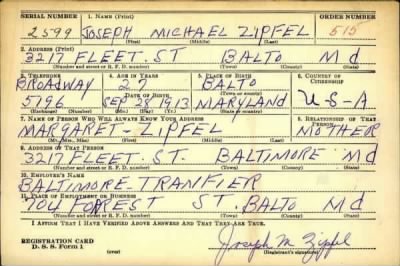 SERIAL NUMBER 1. NAME (Print) ORDER NUMBER
2599 JOSEPH MICHAEL ZIPFEL 515
(First) (Middle) (Last)
2. ADDRESS (Print)
3217 FLEET ST BALTO Md
(Number and street or R. F. D. number) (Town) (County) (State)
3. TELEPHONE 4. AGE IN YEARS 5. PLACE OF BIRTH 6. COUNTRY OF CITIZENSHIP
BROADWAY 27 BALTO
DATE OF BIRTH
5196 SEP 28 1913 MARYLAND U-S-A
(Exchange) (Number) (Mo.) (Day) (Yr.) (State or country)
7. NAME OF PERSON WHO WILL ALWAYS KNOW YOUR ADDRESS 8. RELATIONSHIP OF THAT PERSON
MARGARET-ZIPFEL MOTHER
(Mr., Mrs., Miss) (First) (Middle) (Last)
9. ADDRESS OF THAT PERSON
3217 FLEET. ST. BALTIMORE Md
(Number and street or R. F. D. number) (Town) (County) (State)
10. EMPLOYER'S NAME
BALTIMORE-TRANFIER
11. PLACE OF EMPLOYMENT OR BUSINESS
104 FORREST ST. BALTO Md
(Number and street or R. F. D. number) (Town) (County) (State)
I AFFIRM THAT I HAVE VERIFIED ABOVE ANSWERS AND THAT THEY ARE TRUE.
REGISTRATION CARD
D. S. S. Form 1 (over) Joseph M Zipfel
(Registrant's signature)